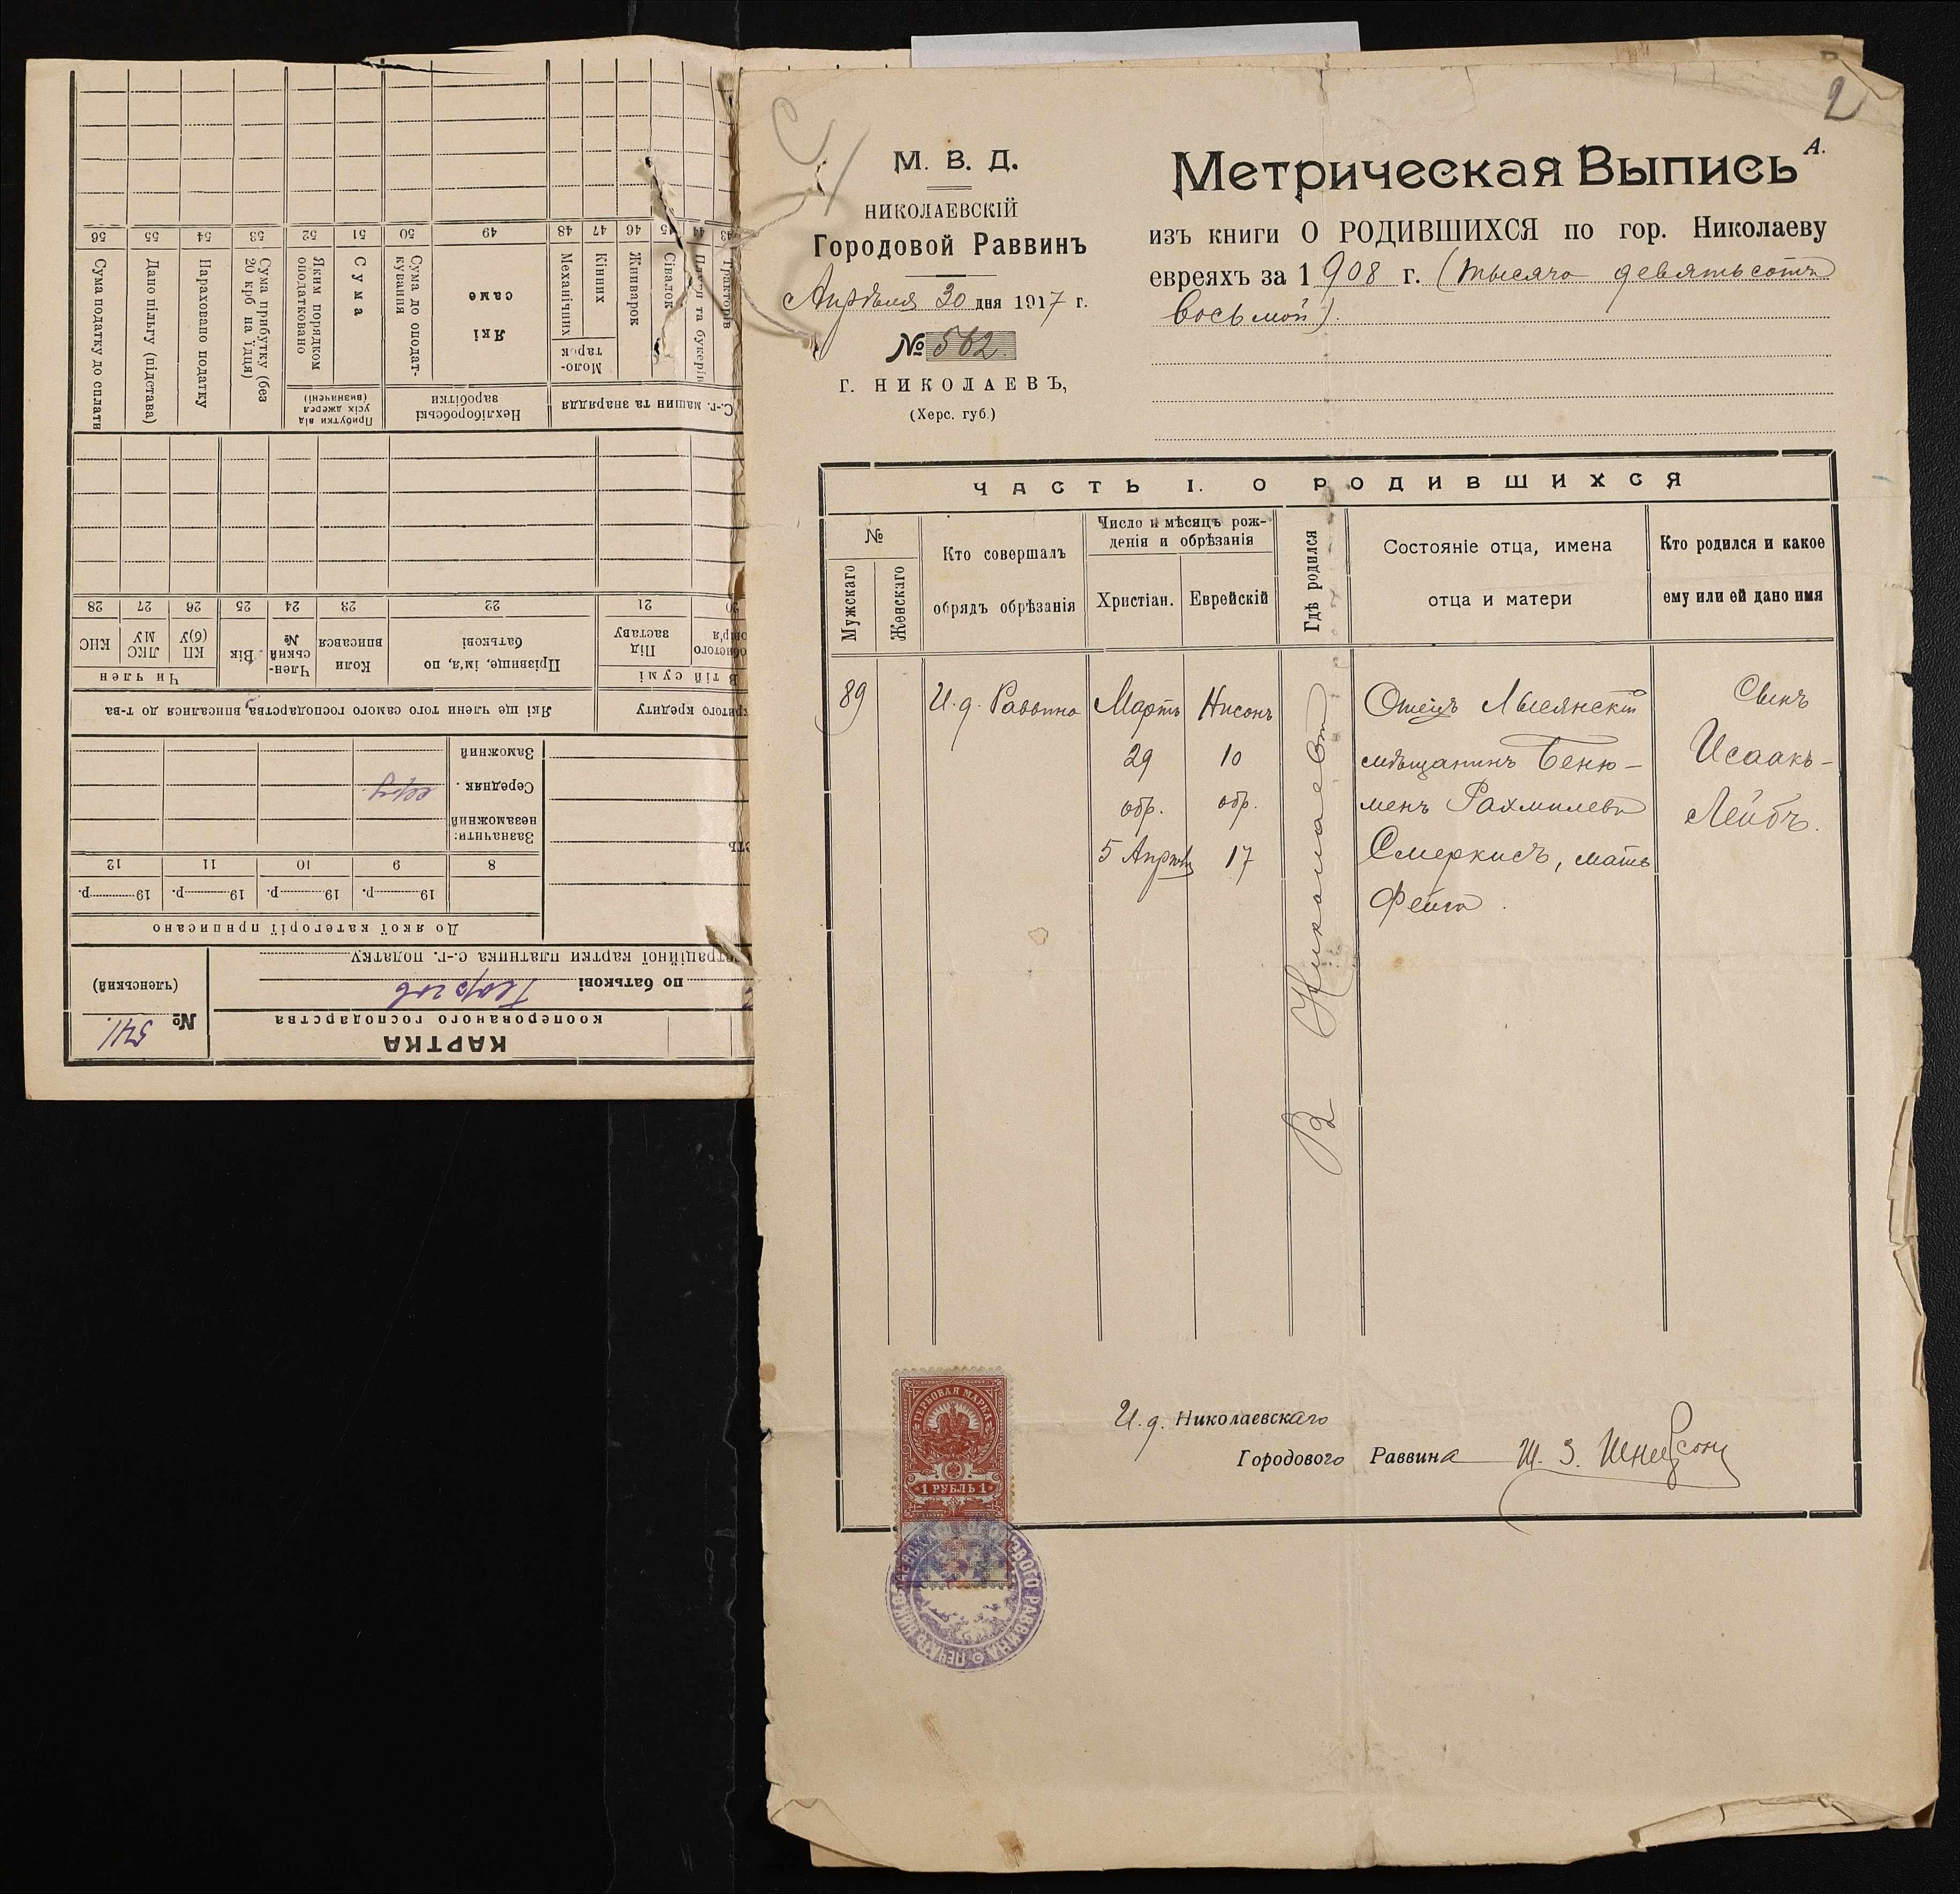 2
М. В. Д.
НИКОЛАЕВСКІЙ
Городовой Раввинъ
Апрѣля 20 дня 1917 г.
№ 562.
Г. НИКОЛАЕВЪ,
(Херс. губ.)
Метрическая Выпись А.
изъ книги О РОДИВШИХСЯ по гор. Николаеву
евреяхъ за 1908 г. (тысяча девятьсотъ
восьмой).
ЧАСТЬ I. О РОДИВШИХСЯ
№
Мужскаго
Женскаго
Кто совершалъ
обрядъ обрѣзанія
Число и мѣсяцъ рож-
денія и обрѣзанія
Христіан.
Еврейскій
Гдѣ родился
Состояніе отца, имена
отца и матери
Кто родился и какое
ему или ей дано имя
89
И. д. Раввина
Мартъ
29
обр.
5 Апрѣля
Нисонъ
10
обр.
17
В Николаевѣ
Отецъ Лысянскій
мѣщанинъ Беню-
менъ Рахмилевъ
Смеркисъ, мать
Фейга.
Сынъ
Исаакъ-
Лейбъ.
И. д. Николаевскаго
Городового Раввина Ш. З. Шнеерсонъ
ГЕРБОВАЯ МАРКА
1 РУБЛЬ 1
КАРТКА
кооперованого господарства
№ 541.
(членський)
по батькові Георгов
страційної картки платника с.-г. податку
До якої категорії приписано
19 р. 19 р. 19 р. 19 р.
8 9 10 11 12
Зазначити:
незаможній
Середняк серед
Заможний
критого кредиту
Які ще члени того самого господарства вписалися до т-ва
В тій сумі
Під
заставу
Прізвище, ім'я, по
батькові
Коли
вписався
Член-
ський
№
Вік
Чи член
КП
(б)У
ЛКС
МУ
КНС
20 21 22 23 24 25 26 27 28
С.-г. машин та знаряддя
Нехліборобські
заробітки
Прибутки від
усіх джерел
(визначені)
Тракторів
Плугів та букерів
Сівалок
Жниварок
Моло-
тарок
Кінних
Механічних
Які
саме
Сума до оподат-
кування
Сума
Яким порядком
оподатковано
Сума прибутку (без
20 крб на їдця)
Нараховано податку
Дано пільгу (підстава)
Сума податку до сплати
43 44 45 46 47 48 49 50 51 52 53 54 55 56